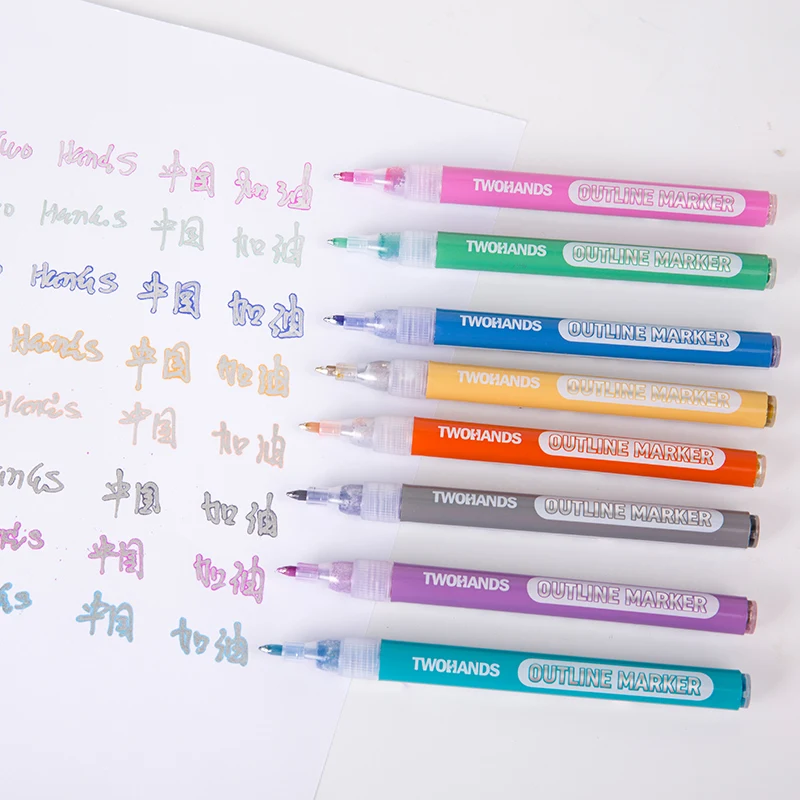 Two Hands 中国 加油
TWOHANDS OUTLINE MARKER
Hands 中国 加油
TWOHANDS OUTLINE MARKER
Hands 中国 加油
TWOHANDS OUTLINE MARKER
Hands 中国 加油
TWOHANDS OUTLINE MARKER
Hands 中国 加油
TWOHANDS OUTLINE MARKER
中国 加油
TWOHANDS OUTLINE MARKER
中国 加油
TWOHANDS OUTLINE MARKER
中国 加油
TWOHANDS OUTLINE MARKER